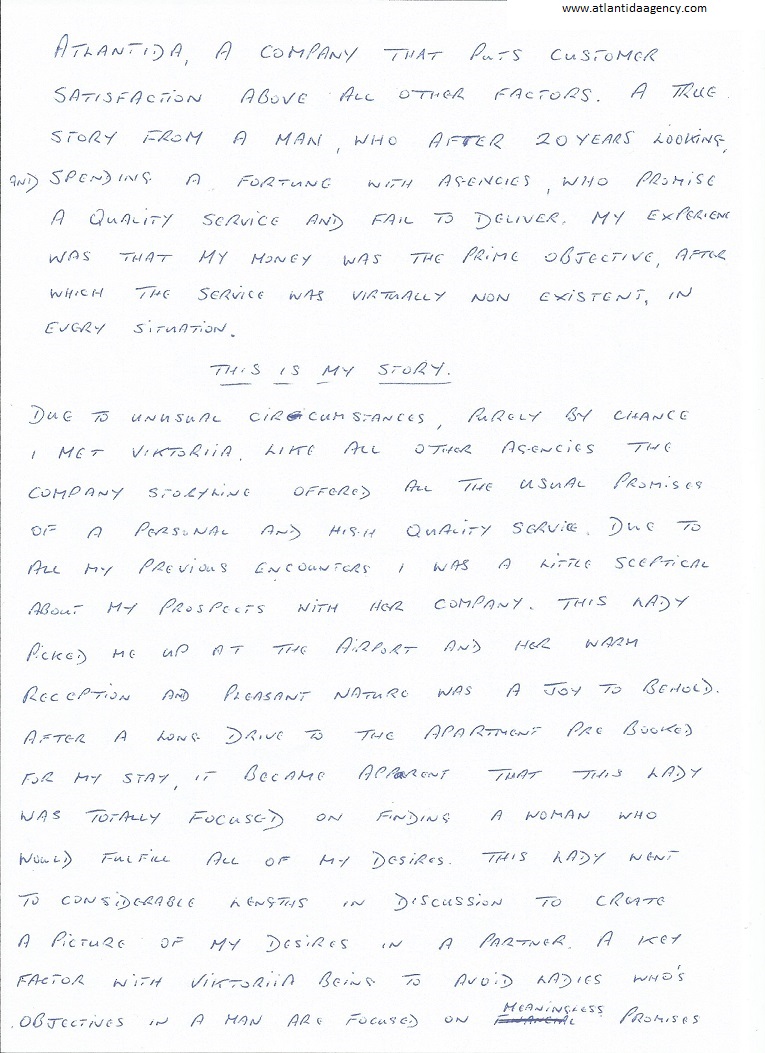 www.atlantidaagency.com
ATLANTIDA, A COMPANY THAT PUTS CUSTOMER
SATISFACTION ABOVE ALL OTHER FACTORS. A TRUE
STORY FROM A MAN, WHO AFTER 20 YEARS LOOKING,
AND SPENDING A FORTUNE WITH AGENCIES, WHO PROMISE
A QUALITY SERVICE AND FAIL TO DELIVER. MY EXPERIENC
WAS THAT MY MONEY WAS THE PRIME OBJECTIVE, AFTER
WHICH THE SERVICE WAS VIRTUALLY NON EXISTENT, IN
EVERY SITUATION.
THIS IS MY STORY.
DUE TO UNUSUAL CIRCUMSTANCES, PURELY BY CHANCE
I MET VIKTORIIA. LIKE ALL OTHER AGENCIES THE
COMPANY STORYLINE OFFERED ALL THE USUAL PROMISES
OF A PERSONAL AND HIGH QUALITY SERVICE. DUE TO
ALL MY PREVIOUS ENCOUNTERS I WAS A LITTLE SCEPTICAL
ABOUT MY PROSPECTS WITH HER COMPANY. THIS LADY
PICKED ME UP AT THE AIRPORT AND HER WARM
RECEPTION AND PLEASANT NATURE WAS A JOY TO BEHOLD.
AFTER A LONG DRIVE TO THE APARTMENT PRE BOOKED
FOR MY STAY, IT BECAME APPARENT THAT THIS LADY
WAS TOTALLY FOCUSED ON FINDING A WOMAN WHO
WOULD FULFILL ALL OF MY DESIRES. THIS LADY WENT
TO CONSIDERABLE LENGTHS IN DISCUSSION TO CREATE
A PICTURE OF MY DESIRES IN A PARTNER. A KEY
FACTOR WITH VIKTORIIA BEING TO AVOID LADIES WHO'S
OBJECTIVES IN A MAN ARE FOCUSED ON MEANINGLESS PROMISES